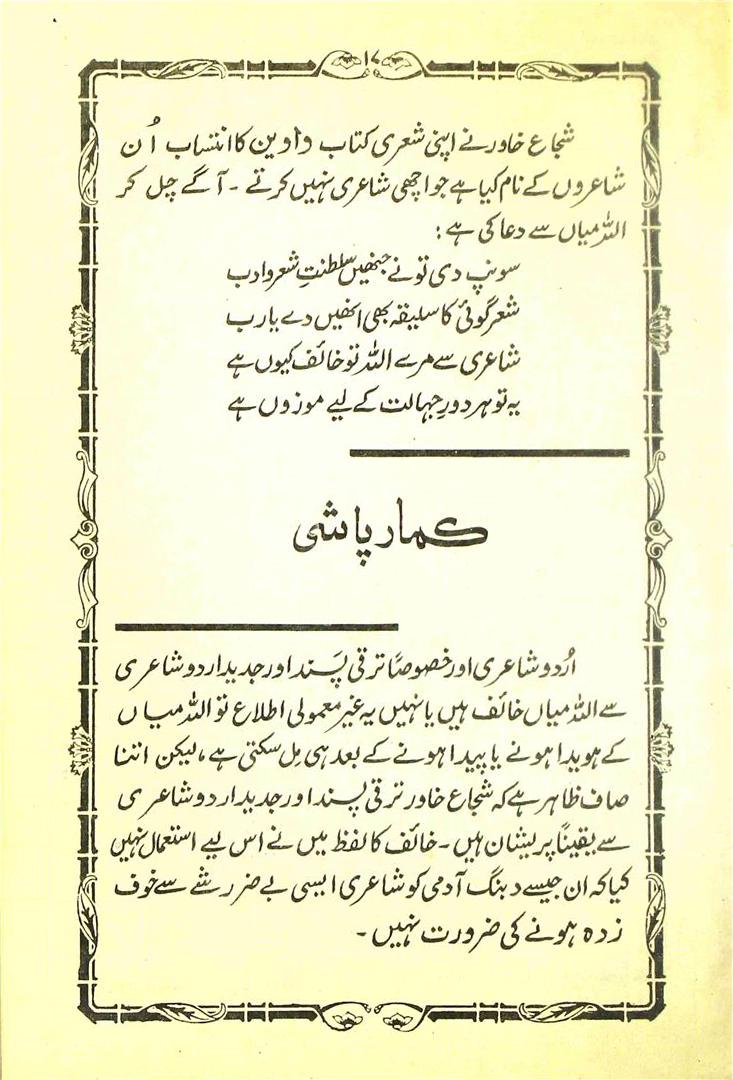 ۱۷
شجاع خاور نے اپنی شعری کتاب واوین کا انتساب اُن
شاعروں کے نام کیا ہے جو اچھی شاعری نہیں کرتے ۔ آگے چل کر
اللہ میاں سے دعا کی ہے :
سونپ دی تو نے جنھیں سلطنتِ شعر و ادب
شعر گوئی کا سلیقہ بھی انھیں دے یارب
شاعری سے مرے اللہ تو خائف کیوں ہے
یہ تو ہر دورِ جہالت کے لیے موزوں ہے
کمار پاشی
اُردو شاعری اور خصوصاً ترقی پَسند اور جدید اردو شاعری
سے اللہ میاں خائف ہیں یا نہیں یہ غیر معمولی اطلاع تو اللہ میاں
کے ہویدا ہونے یا پیدا ہونے کے بعد ہی مِل سکتی ہے ، لیکن اتنا
صاف ظاہر ہے کہ شجاع خاور ترقی پسند اور جدید اردو شاعری
سے یقیناً پریشان ہیں ۔ خائف کا لفظ میں نے اس لیے استعمال نہیں
کیا کہ ان جیسے دبنگ آدمی کو شاعری ایسی بے ضرر شے سے خوف
زدہ ہونے کی ضرورت نہیں ۔